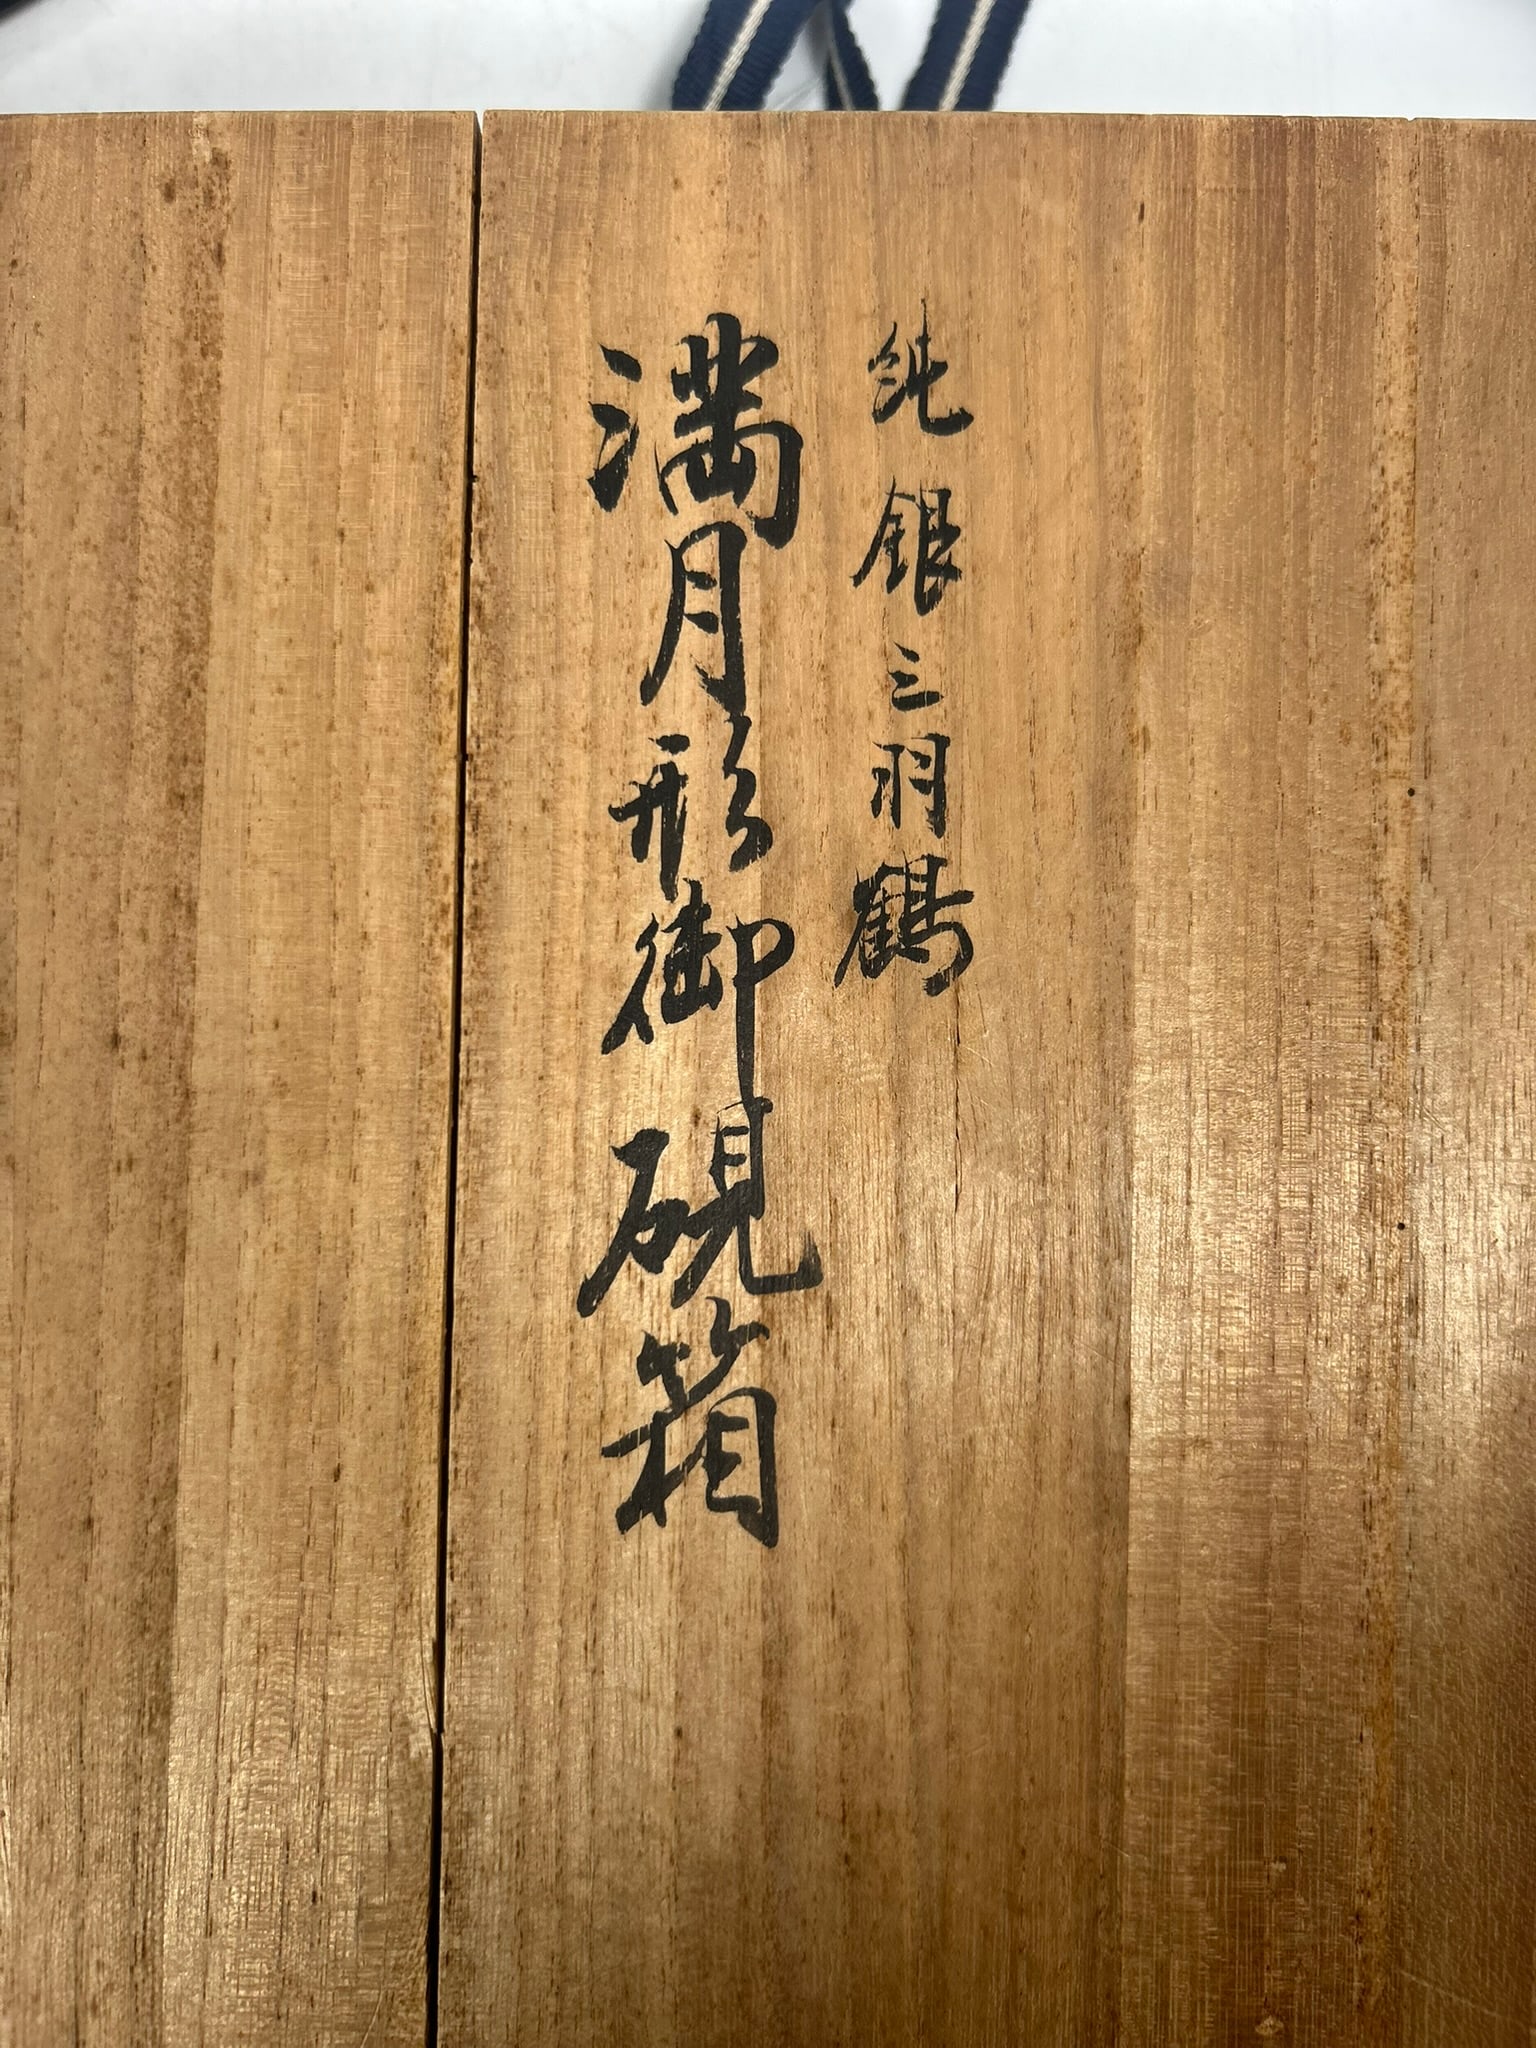 純銀三羽鶴
満月形御硯箱